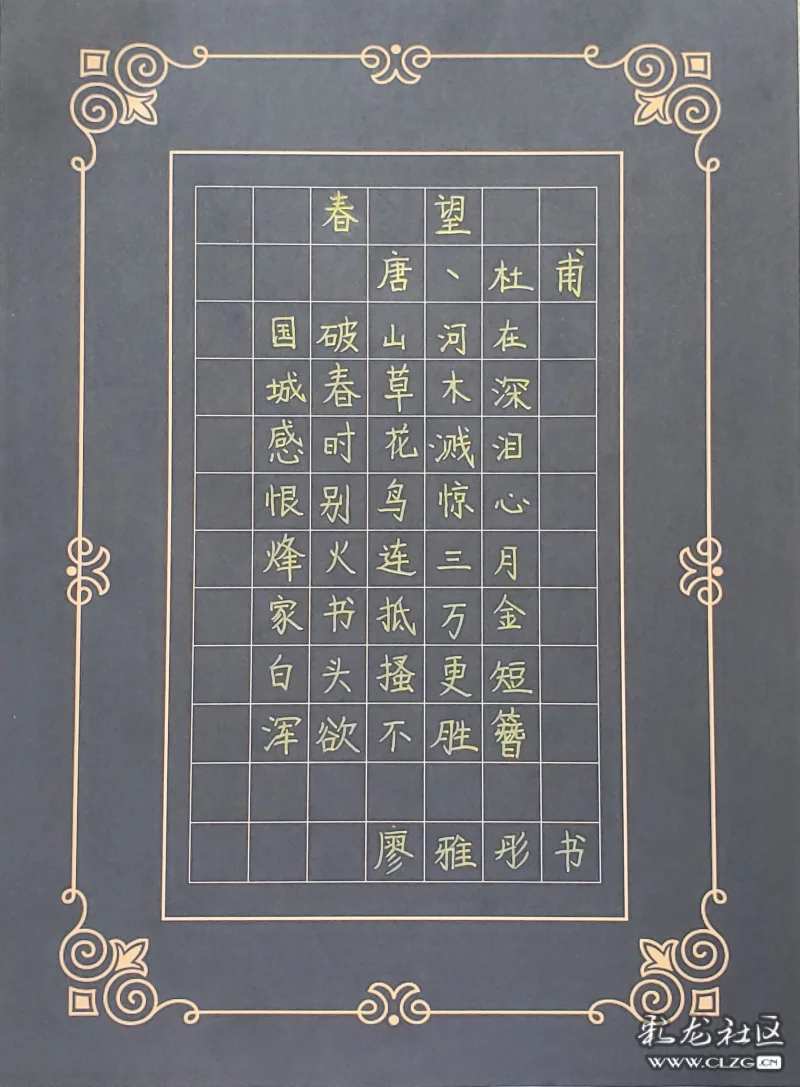 春望
唐、杜甫
国破山河在
城春草木深
感时花溅泪
恨别鸟惊心
烽火连三月
家书抵万金
白头搔更短
浑欲不胜簪
廖雅彤书
彩龙社区
WWW.CLZG.CN